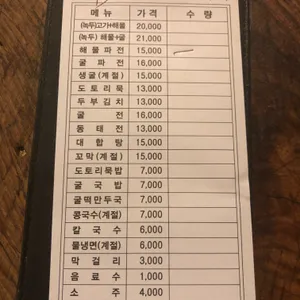 메뉴 가격 수량
(녹두)고기+해물 20,000
(녹두) 해물+굴 21,000
해물파전 15,000
굴파전 16,000
생굴(계절) 15,000
도토리묵 13,000
두부김치 13,000
굴전 16,000
동태전 13,000
대합탕 15,000
꼬막(계절) 15,000
도토리묵밥 7,000
굴국밥 7,000
굴떡만두국 7,000
콩국수(계절) 7,000
칼국수 6,000
물냉면(계절) 6,000
막걸리 3,000
음료수 1,000
소주 4,000